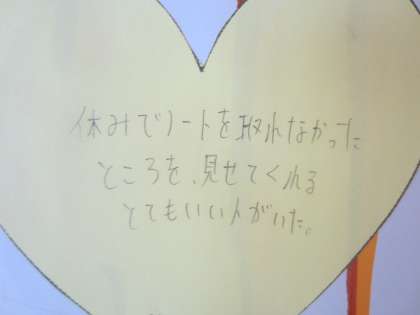 休みでノートを取れなかった
ところを、見せてくれる
とてもいい人がいた。